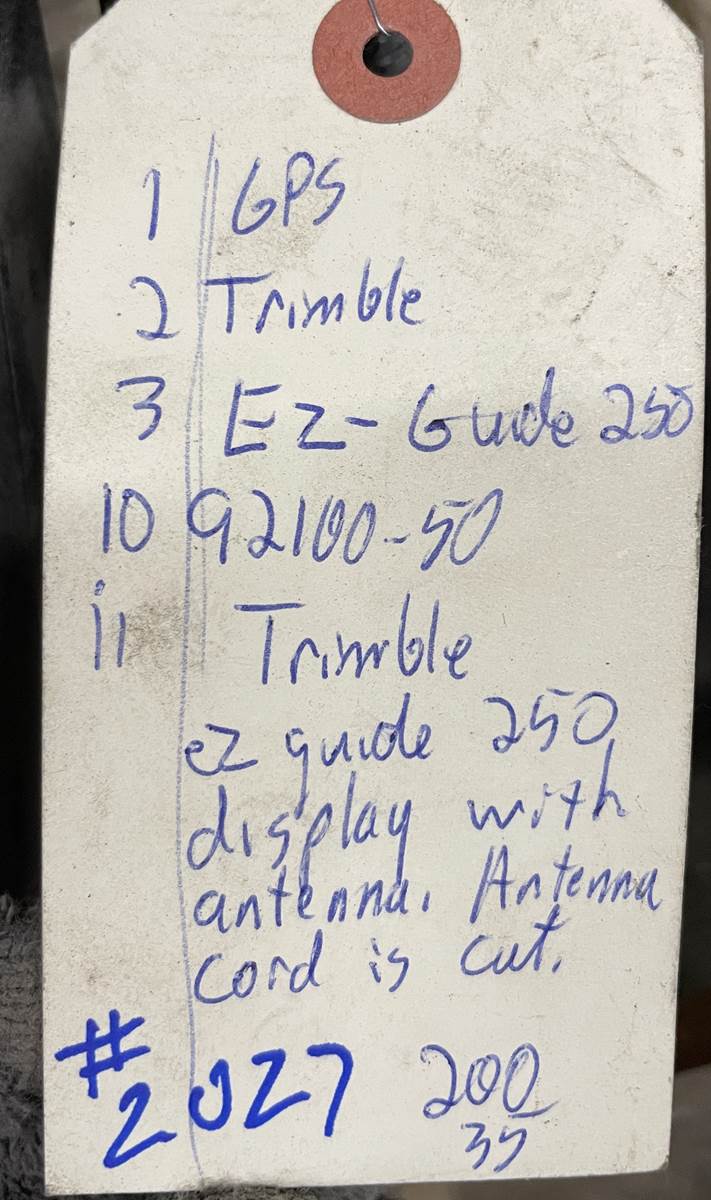 1 GPS
2 Trimble
3 EZ-Guide 250
10 92100-50
11 Trimble
ez guide 250
display with
antenna. Antenna
cord is cut.
#2027 200
35